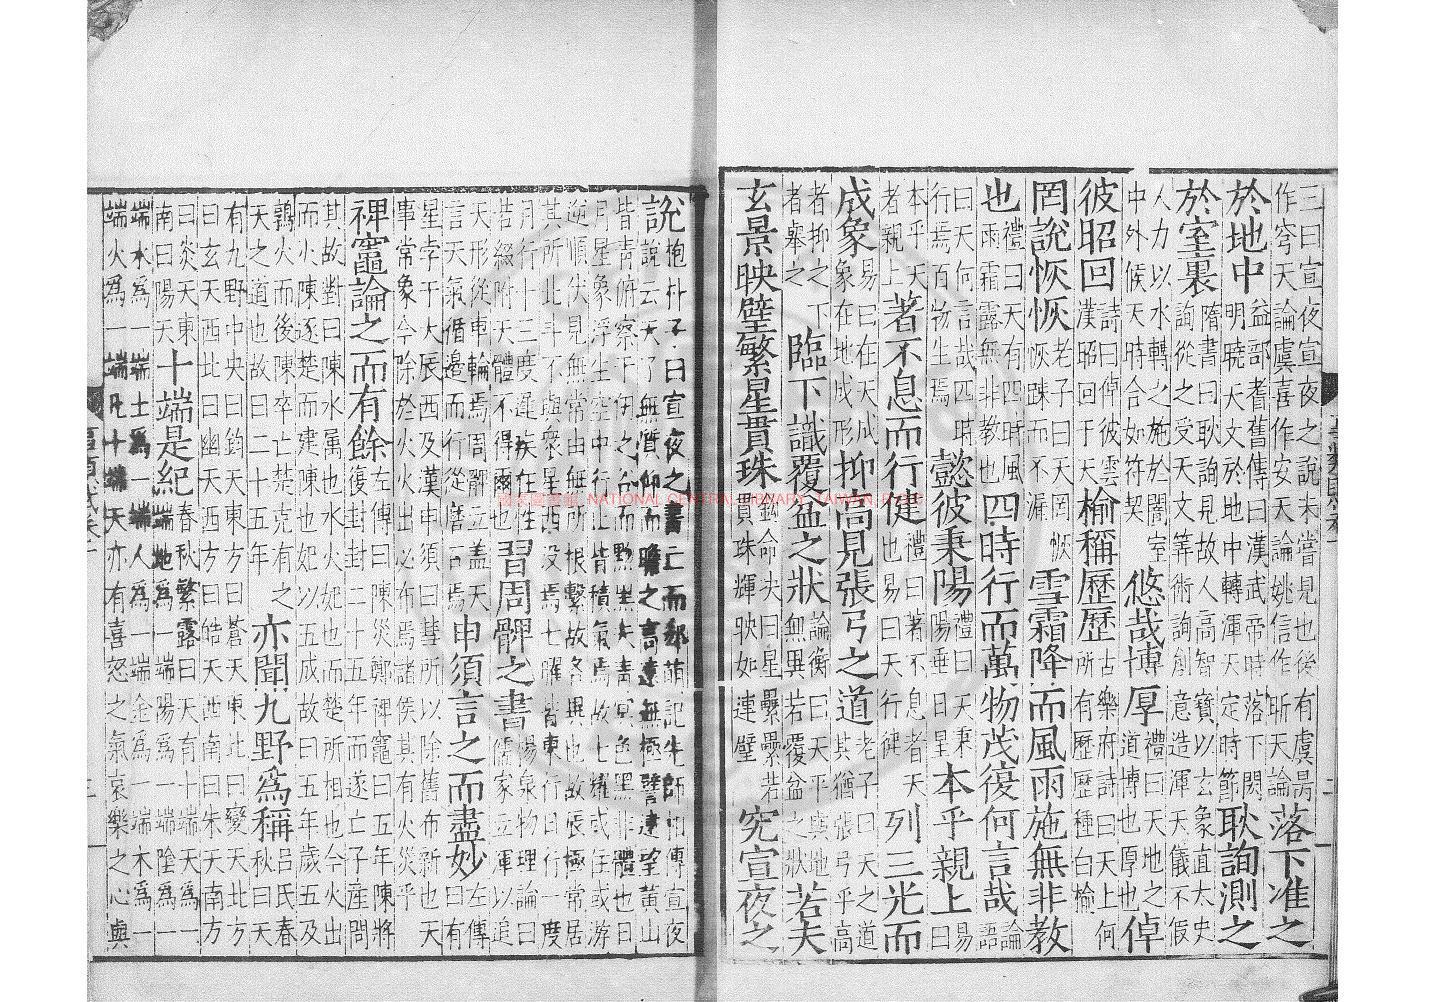 三曰宣夜宣夜之說未嘗見也後有虞昺作穹天論虞喜作安天論姚信作昕天論落下准之
於地中益部耆舊傳曰漢武帝時落下閎明曉天文於地中轉渾天定時節耿詢測之
於室裏隋書曰耿詢見故人高智寶以玄象直太史詢從之受天文等術詢創意造渾天儀不假
人力以水轉之施於闇室中外候天時合如符契悠哉博厚禮曰天地之道博也厚也倬
彼昭回詩曰倬彼雲漢昭回于天榆稱歷歷古樂府詩曰天上何所有歷歷種白榆
罔說恢恢老子曰天罔恢恢踈而不漏雪霜降而風雨施無非教
也禮曰天有四時風雨霜露無非教也四時行而萬物茂復何言哉論語
曰天何言哉四時行焉百物生焉懿彼秉陽禮曰天秉陽垂日星本乎親上易曰
本乎天者親上著不息而行健禮曰著不息者天也易曰天行健列三光而
成象易曰在天成象在地成形抑高見張弓之道老子曰天之道其猶張弓乎高
者抑之下者舉之臨下識覆盆之狀論衡曰天平與地無異若覆盆之狀若夫
玄景映璧繁星貫珠鉤命决曰星纍纍若貫珠輝映如連璧究宣夜之
說抱朴子曰宣夜之書亡而郄萌記先師相傳宣夜說云天了無質仰而瞻之高遠無極譬遠望黃山
皆青俯察千仞之谷而黝黑夫青冥色黑非體也日月星象浮生空中行止皆積氣焉故七耀或住或游
逆順伏見無常由無所根繫故各異也故辰極常居其所北斗不與衆星西没焉七曜皆東行日行一度
月行十三度遲疾在性若綴附天體不得爾也習周髀之書陽泉物理論曰儒家立渾以追
天形從車輪焉周髀立蓋天言天氣循邊而行從磨石焉申須言之而盡妙左傳曰有
星孛于大辰西及漢申須曰彗所以除舊布新也天事常象今除於火火出必布焉諸侯其有火災乎
裨竈論之而有餘左傳曰陳災鄭裨竈曰五年陳將復封封五十二年而遂亡子產問
其故對曰陳水屬也水火妃也而楚所相也今火出而火陳逐楚而建陳也妃以五成故曰五年歲五及
鶉火而後陳卒亡楚克有之天之道也故曰五十二年亦聞九野為稱呂氏春秋曰天
有九野中央曰鈞天東方曰蒼天東北曰變天北方曰玄天西北曰幽天西方曰皓天西南曰朱天南方
曰炎天東南曰陽天十端是紀春秋繁露曰天有十端天為一端地為一端陽為一端陰為一
端水為一端土為一端人為一端金為一端木為一端火為一端凡十端天亦有喜怒之氣哀樂之心與
國家圖書館 NATIONAL CENTRAL LIBRARY, TAIWAN, R.O.C